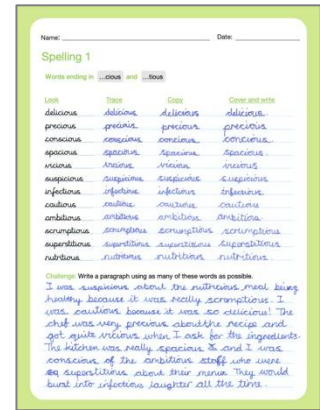 Name: Date:
Spelling 1
Words ending in ...cious and ...tious
Look Trace Copy Cover and write
delicious delicious delicious delicious.
precious precious precious precious
conscious conscious concious concious.
spacious spacious spacious spacious.
vicious vicious vicious vicious
suspicious suspicious suspicious suspicious
infectious infectious infectious infectious.
cautious cautious cautious cautious
ambitious ambitious ambitious ambitious
scrumptious scrumptious scrumptious scrumptious
superstitious superstitious superstitious superstitious
nutritious nutritious nutritious nutritious
Challenge: Write a paragraph using as many of these words as possible.
I was suspicious about the nutricious meal being
healthy because it was really scromptious. I
was cautious because it was so delicious! The
chef was very precious about the recipe and
got quite vicious when I ask for the ingredients.
The kitchen was really spacious & and I was
conscious of the ambitious staff who were
superstitious about their menus. They would
burst into infectious laughter all the time.